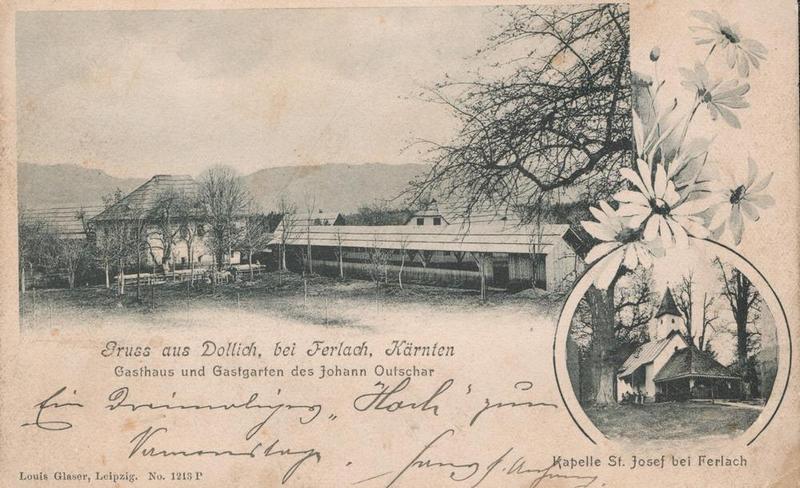 Gruss aus Dollich, bei Ferlach, Kärnten
Gasthaus und Gastgarten des Johann Outschar
Ein Dreimaliges „Hoch“ zum
Kapelle St. Josef bei Ferlach
Louis Glaser, Leipzig. No. 1213 P